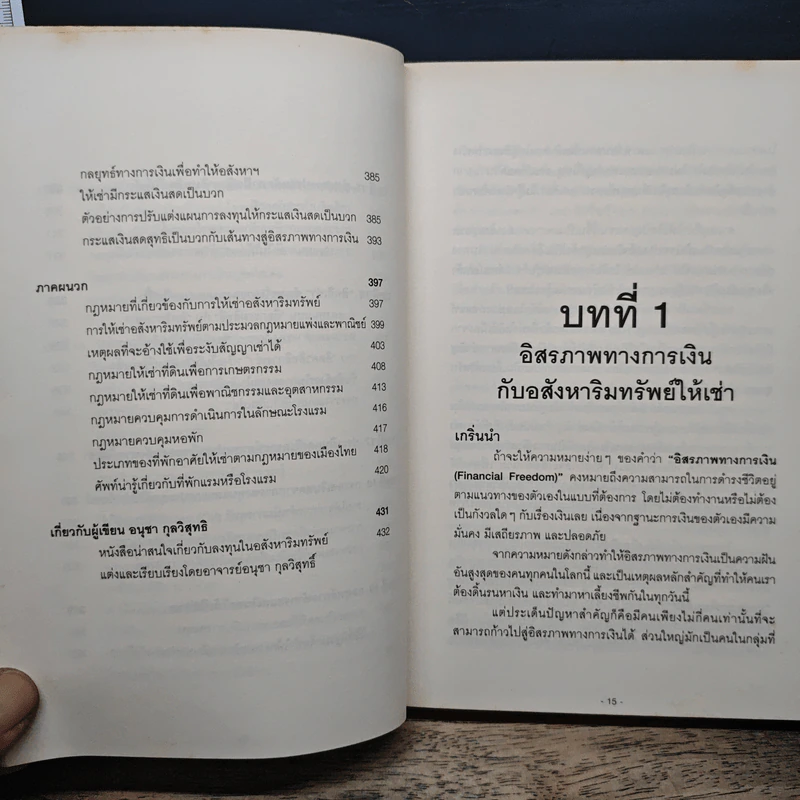 กลยุทธ์ทางการเงินเพื่อทำให้อสังหาฯ 385
ให้เช่ามีกระแสเงินสดเป็นบวก
ตัวอย่างการปรับแต่งแผนการลงทุนให้กระแสเงินสดเป็นบวก 385
กระแสเงินสดสุทธิเป็นบวกกับเส้นทางสู่อิสรภาพทางการเงิน 393
ภาคผนวก 397
กฎหมายที่เกี่ยวข้องกับการให้เช่าอสังหาริมทรัพย์ 397
การให้เช่าอสังหาริมทรัพย์ตามประมวลกฎหมายแพ่งและพาณิชย์ 399
เหตุผลที่จะอ้างใช้เพื่อระงับสัญญาเช่าได้ 403
กฎหมายให้เช่าที่ดินเพื่อการเกษตรกรรม 408
กฎหมายให้เช่าที่ดินเพื่อพาณิชกรรมและอุตสาหกรรม 413
กฎหมายควบคุมการดำเนินการในลักษณะโรงแรม 416
กฎหมายควบคุมหอพัก 417
ประเภทของที่พักอาศัยให้เช่าตามกฎหมายของเมืองไทย 418
ศัพท์น่ารู้เกี่ยวกับที่พักแรมหรือโรงแรม 420
เกี่ยวกับผู้เขียน อนุชา กุลวิสุทธิ์ 431
หนังสือน่าสนใจเกี่ยวกับลงทุนในอสังหาริมทรัพย์ 432
แต่งและเรียบเรียงโดยอาจารย์อนุชา กุลวิสุทธิ์
บทที่ 1
อิสรภาพทางการเงิน
กับอสังหาริมทรัพย์ให้เช่า
เกริ่นนำ
ถ้าจะให้ความหมายง่ายๆ ของคำว่า "อิสรภาพทางการเงิน
(Financial Freedom)" คงหมายถึงความสามารถในการดำรงชีวิตอยู่
ตามแนวทางของตัวเองในแบบที่ต้องการ โดยไม่ต้องทำงานหรือไม่ต้อง
เป็นกังวลใดๆ กับเรื่องเงินเลย เนื่องจากฐานะการเงินของตัวเองมีความ
มั่นคง มีเสถียรภาพ และปลอดภัย
จากความหมายดังกล่าวทำให้อิสรภาพทางการเงินเป็นความฝัน
อันสูงสุดของคนทุกคนในโลกนี้ และเป็นเหตุผลหลักสำคัญที่ทำให้คนเรา
ต้องดิ้นรนหาเงิน และทำมาหาเลี้ยงชีพกันในทุกวันนี้
แต่ประเด็นปัญหาสำคัญก็คือมีคนเพียงไม่กี่คนเท่านั้นที่จะ
สามารถก้าวไปสู่อิสรภาพทางการเงินได้ ส่วนใหญ่มักเป็นคนในกลุ่มที่
- 15 -